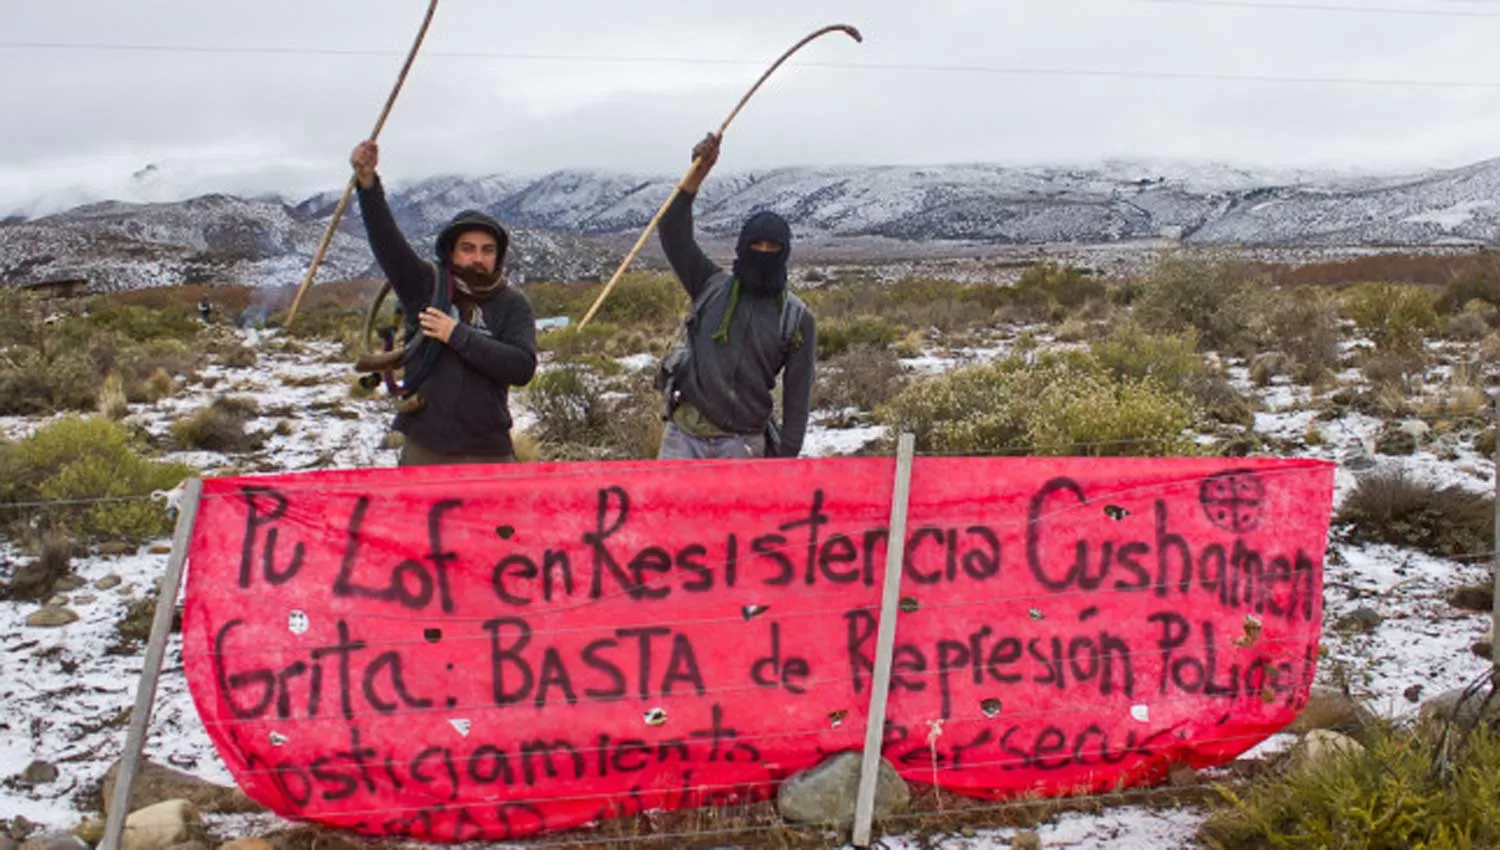 Pu Lof en Resistencia Cushamen
Grita: BASTA de Represión Policial
hostigamiento